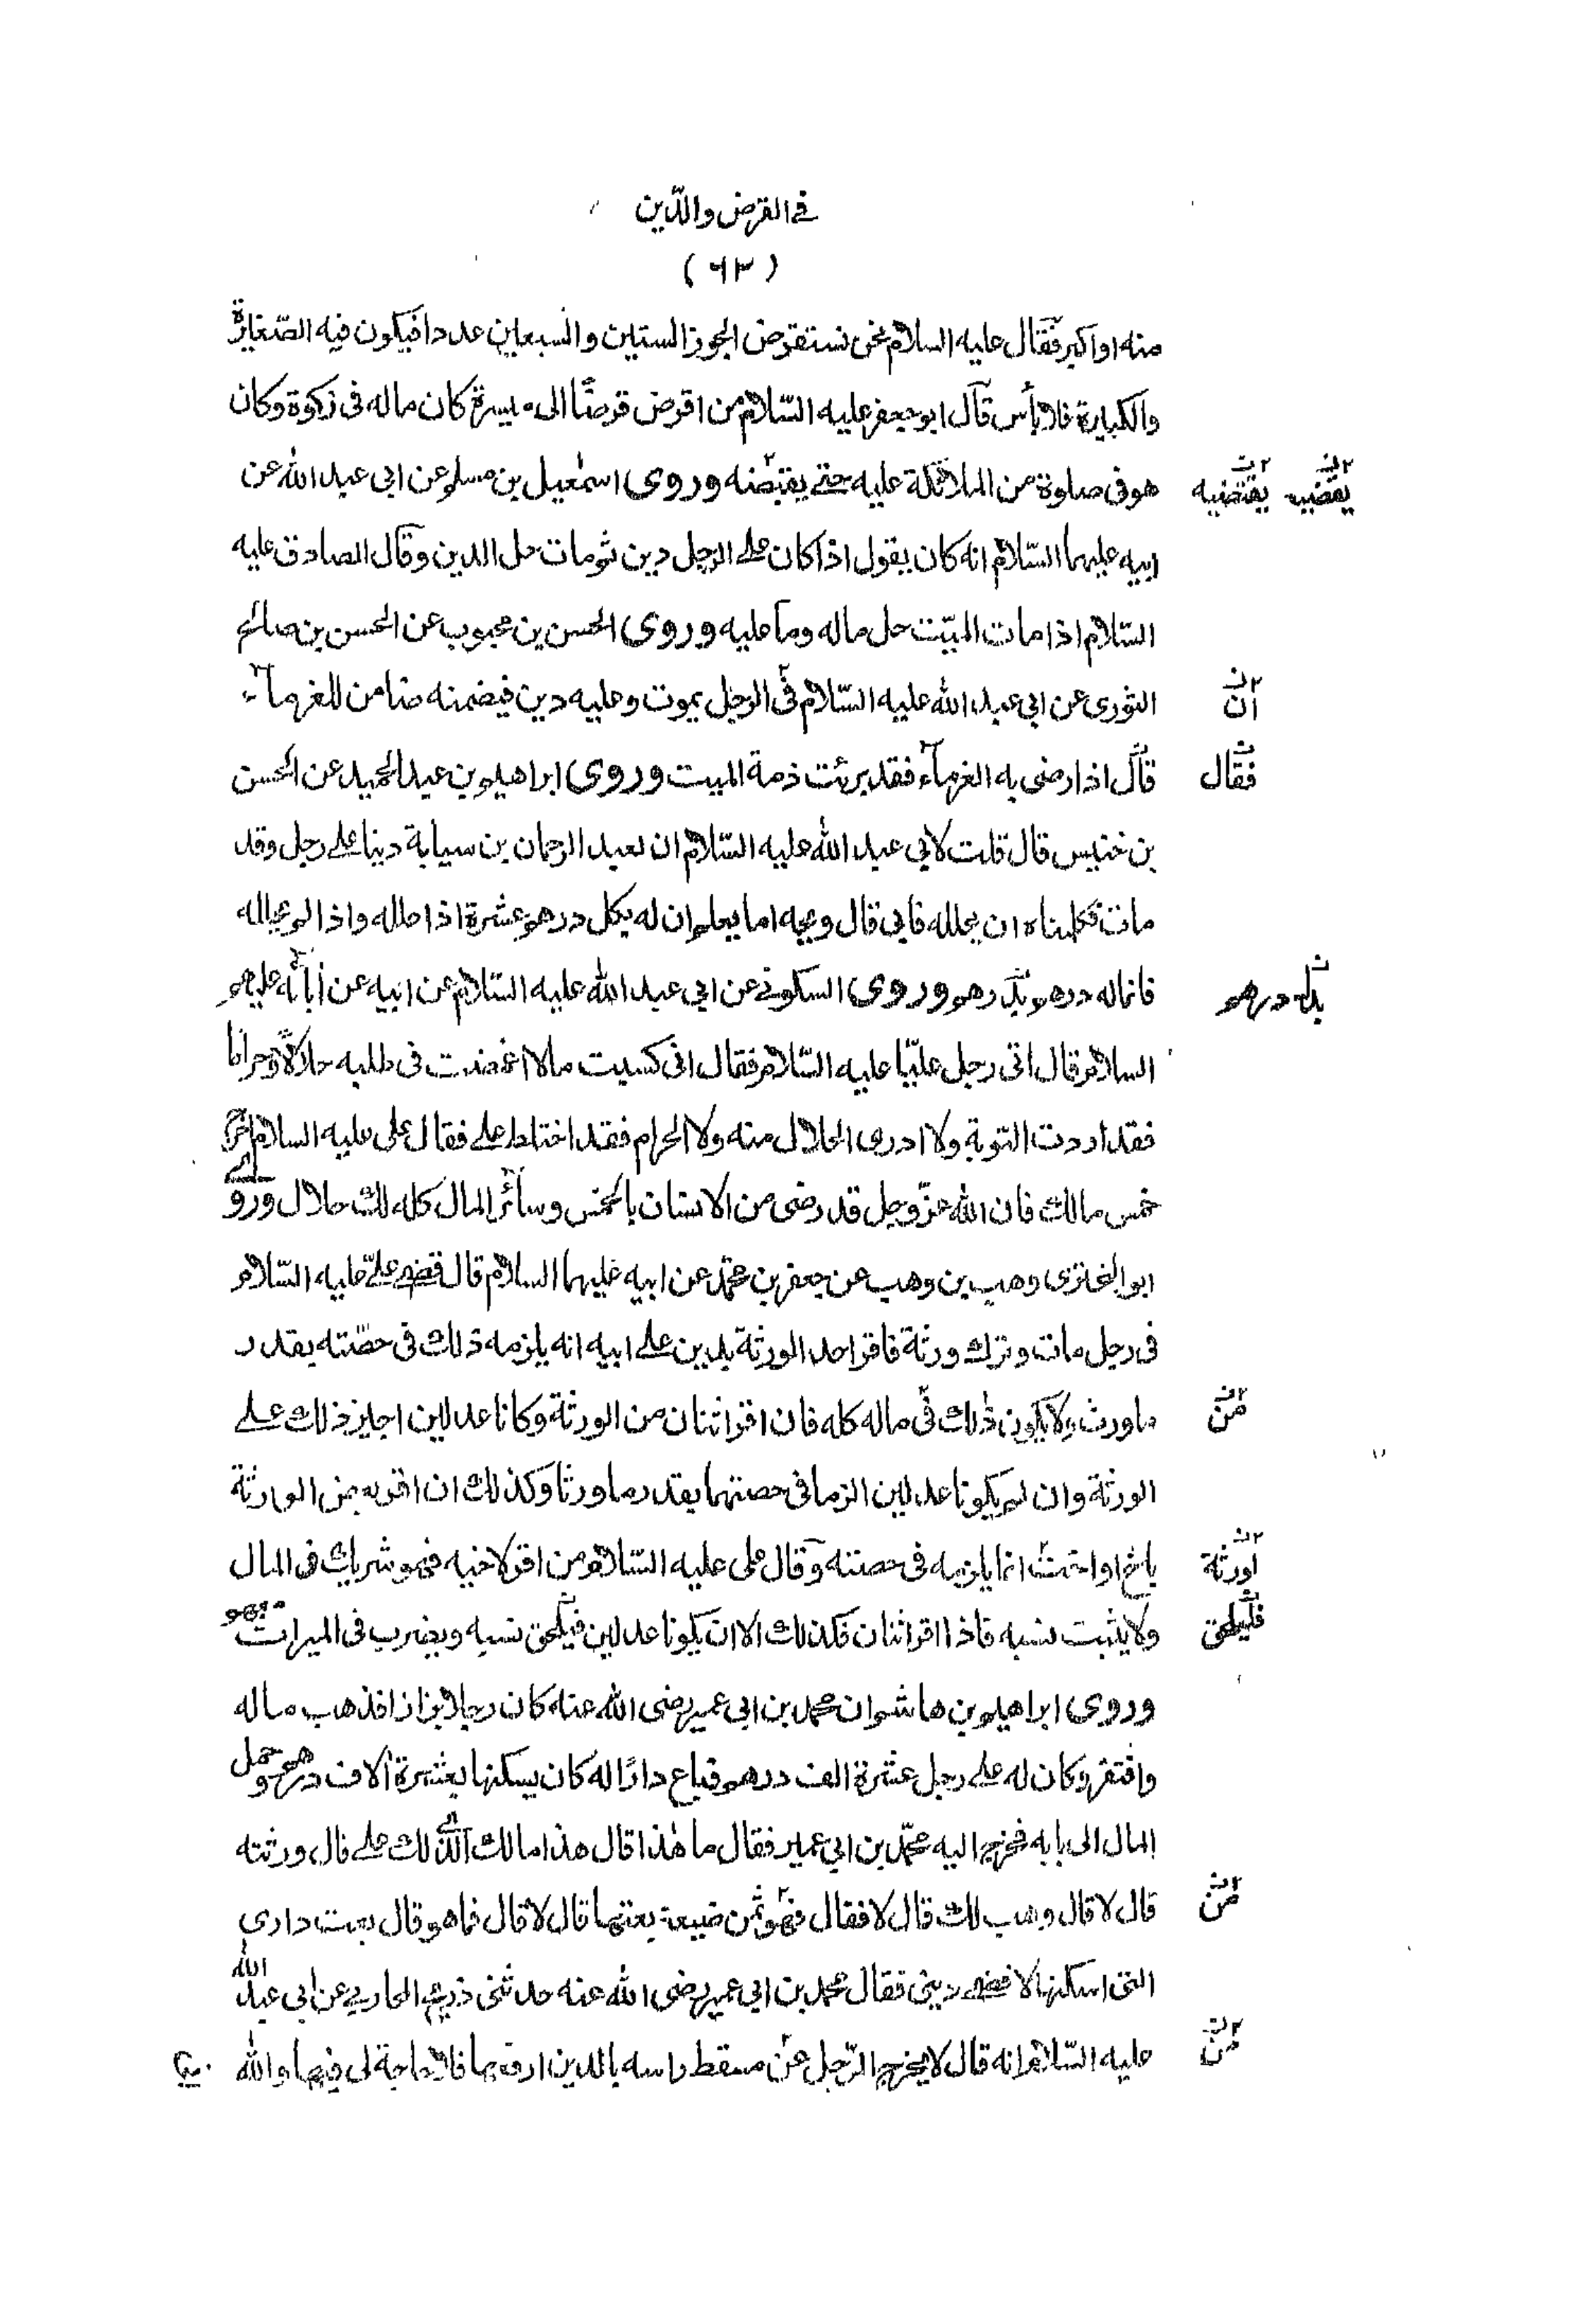 فی القرض والدّین
(۶۳)
منه او اکبر فقال علیه السلام نحن نستقرض الجوز الستین والسبعین عددا فیکون فیه الصّغیرة
والکبیرة فلا بأس قال ابو جعفر علیه السّلام من اقرض قرضًا الی میسرة کان ماله فی زکوة وکان
هو فی صلوة من الملائکة علیه حتی یقبضه وروی اسمٰعیل بن مسلم عن ابی عبد الله عن
یقتضیه
یقضیه
ابیه علیهما السّلام انه کان یقول اذا کان علی الرجل دین ثم مات حل الدین وقال الصادق علیه
السّلام اذا مات المیّت حل ماله وما علیه وروی الحسن بن محبوب عن الحسن بن صالح
الثوری عن ابی عبد الله علیه السّلام فی الرجل یموت وعلیه دین فیضمنه ضامن للغرمآء
ان
قال اذا رضی به الغرمآء فقد برئت ذمة المیت وروی ابراهیم بن عبد الحمید عن الحسن
فقال
بن خنیس قال قلت لابی عبد الله علیه السّلام ان لعبد الرحمان بن سیابة دینا علی رجل وقد
مات فکلمناه ان یحلله فابی قال ویحه اما یعلم ان له بکل درهم عشرة اذا حلله واذا لم یحلله
فانما له درهم بدل درهم وروی السکونی عن ابی عبد الله علیه السّلام عن ابیه عن اٰبائه علیهم
بدل درهم
السلام قال اتی رجل علیّا علیه السّلام فقال انی کسبت مالا اغمضت فی طلبه حلالًا وحرامًا
فقد اردت التوبة ولا ادری الحلال منه ولا الحرام فقد اختلط علی فقال علی علیه السلام اخرج
خمس مالك فان الله عزّ وجل قد رضی من الانسان بالخمس وسائر المال کله لك حلال وروی
ابو البختری وهب بن وهب عن جعفر بن محمّد عن ابیه علیهما السلام قال قضی علیّ علیه السّلام
فی رجل مات وترك ورثة فاقر احد الورثة بدین علی ابیه انه یلزمه ذلك فی حصّته بقدر
ما ورث ولا یکون ذٰلك فی ماله کله فان اقر اثنان من الورثة وکانا عدلین اجیز ذلك علی
من
الورثة وان لم یکونا عدلین الزما فی حصتهما بقدر ما ورثا وکذلك ان اقر بعض الورثة
باخ او اخت انما یلزمه فی حصته وقال علی علیه السّلام من اقر لاخیه فهو شریك فی المال
اورثة
ولا یثبت نسبه فاذا اقر اثنان فکذلك الا ان یکونا عدلین فیلحق نسبه ویضرب فی المیراث معهم
فلیلحق
وروی ابراهیم بن هاشم ان محمد بن ابی عمیر رضی الله عنه کان رجلا بزازا فذهب ماله
وافتقر وکان له علی رجل عشرة الف درهم فباع دارًا له کان یسکنها بعشرة اٰلاف درهم وحمل
المال الی بابه فخرج الیه محمّد بن ابی عمیر فقال ما هٰذا قال هذا مالك الذی لك علی قال ورثته
قال لا قال وهب لك قال لا فقال فهو ثمن ضیعة بعتها قال لا قال فما هو قال بعت داری
من
التی اسکنها لاقضی دینی فقال محمد بن ابی عمیر رضی الله عنه حدثنی ذریح المحاربی عن ابی عبد الله
علیه السّلام انه قال لا یخرج الرّجل عن مسقط راسه بالدین ارفعها فلا حاجة لی فیها والله
من